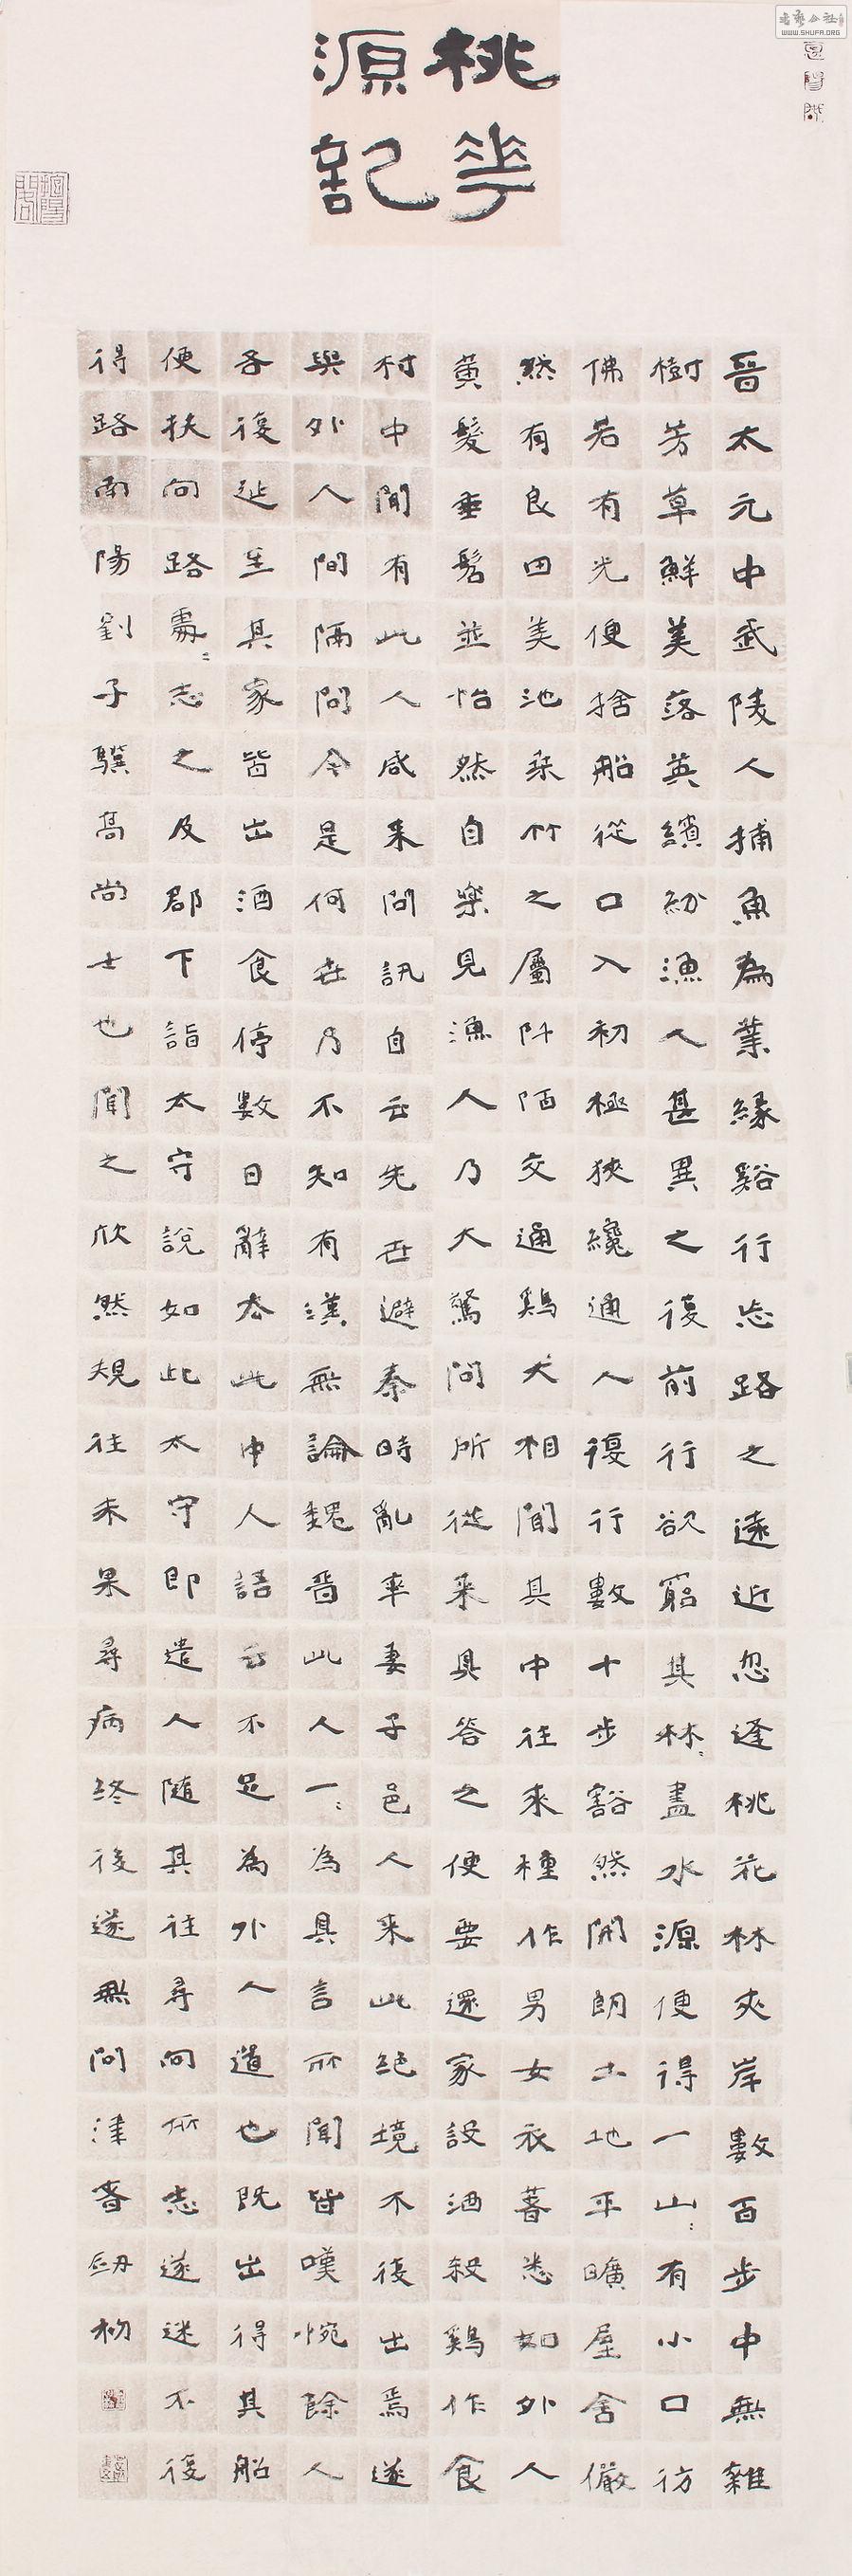 書藝公社
WWW.SHUFA.ORG
桃華
源記
晉太元中武陵人捕魚為業緣谿行忘路之遠近忽逢桃花林夾岸數百步中無雜
樹芳草鮮美落英繽紛漁人甚異之復前行欲窮其林〻盡水源便得一山〻有小口彷
佛若有光便捨船從口入初極狹纔通人復行數十步豁然開朗土地平曠屋舍儼
然有良田美池桑竹之屬阡陌交通鷄犬相聞其中往來種作男女衣著悉如外人
黃髮垂髫並怡然自樂見漁人乃大驚問所從来具答之便要還家設酒殺鷄作食
村中聞有此人咸来問訊自云先世避秦時亂率妻子邑人来此絕境不復出焉遂
與外人間隔問今是何世乃不知有漢無論魏晉此人一〻為具言所聞皆嘆惋餘人
各復延至其家皆出酒食停數日辭去此中人語云不足為外人道也既出得其船
便扶向路處〻志之及郡下詣太守說如此太守即遣人隨其往尋向所志遂迷不復
得路南陽劉子驥高尚士也聞之欣然規往未果尋病終後遂無問津者